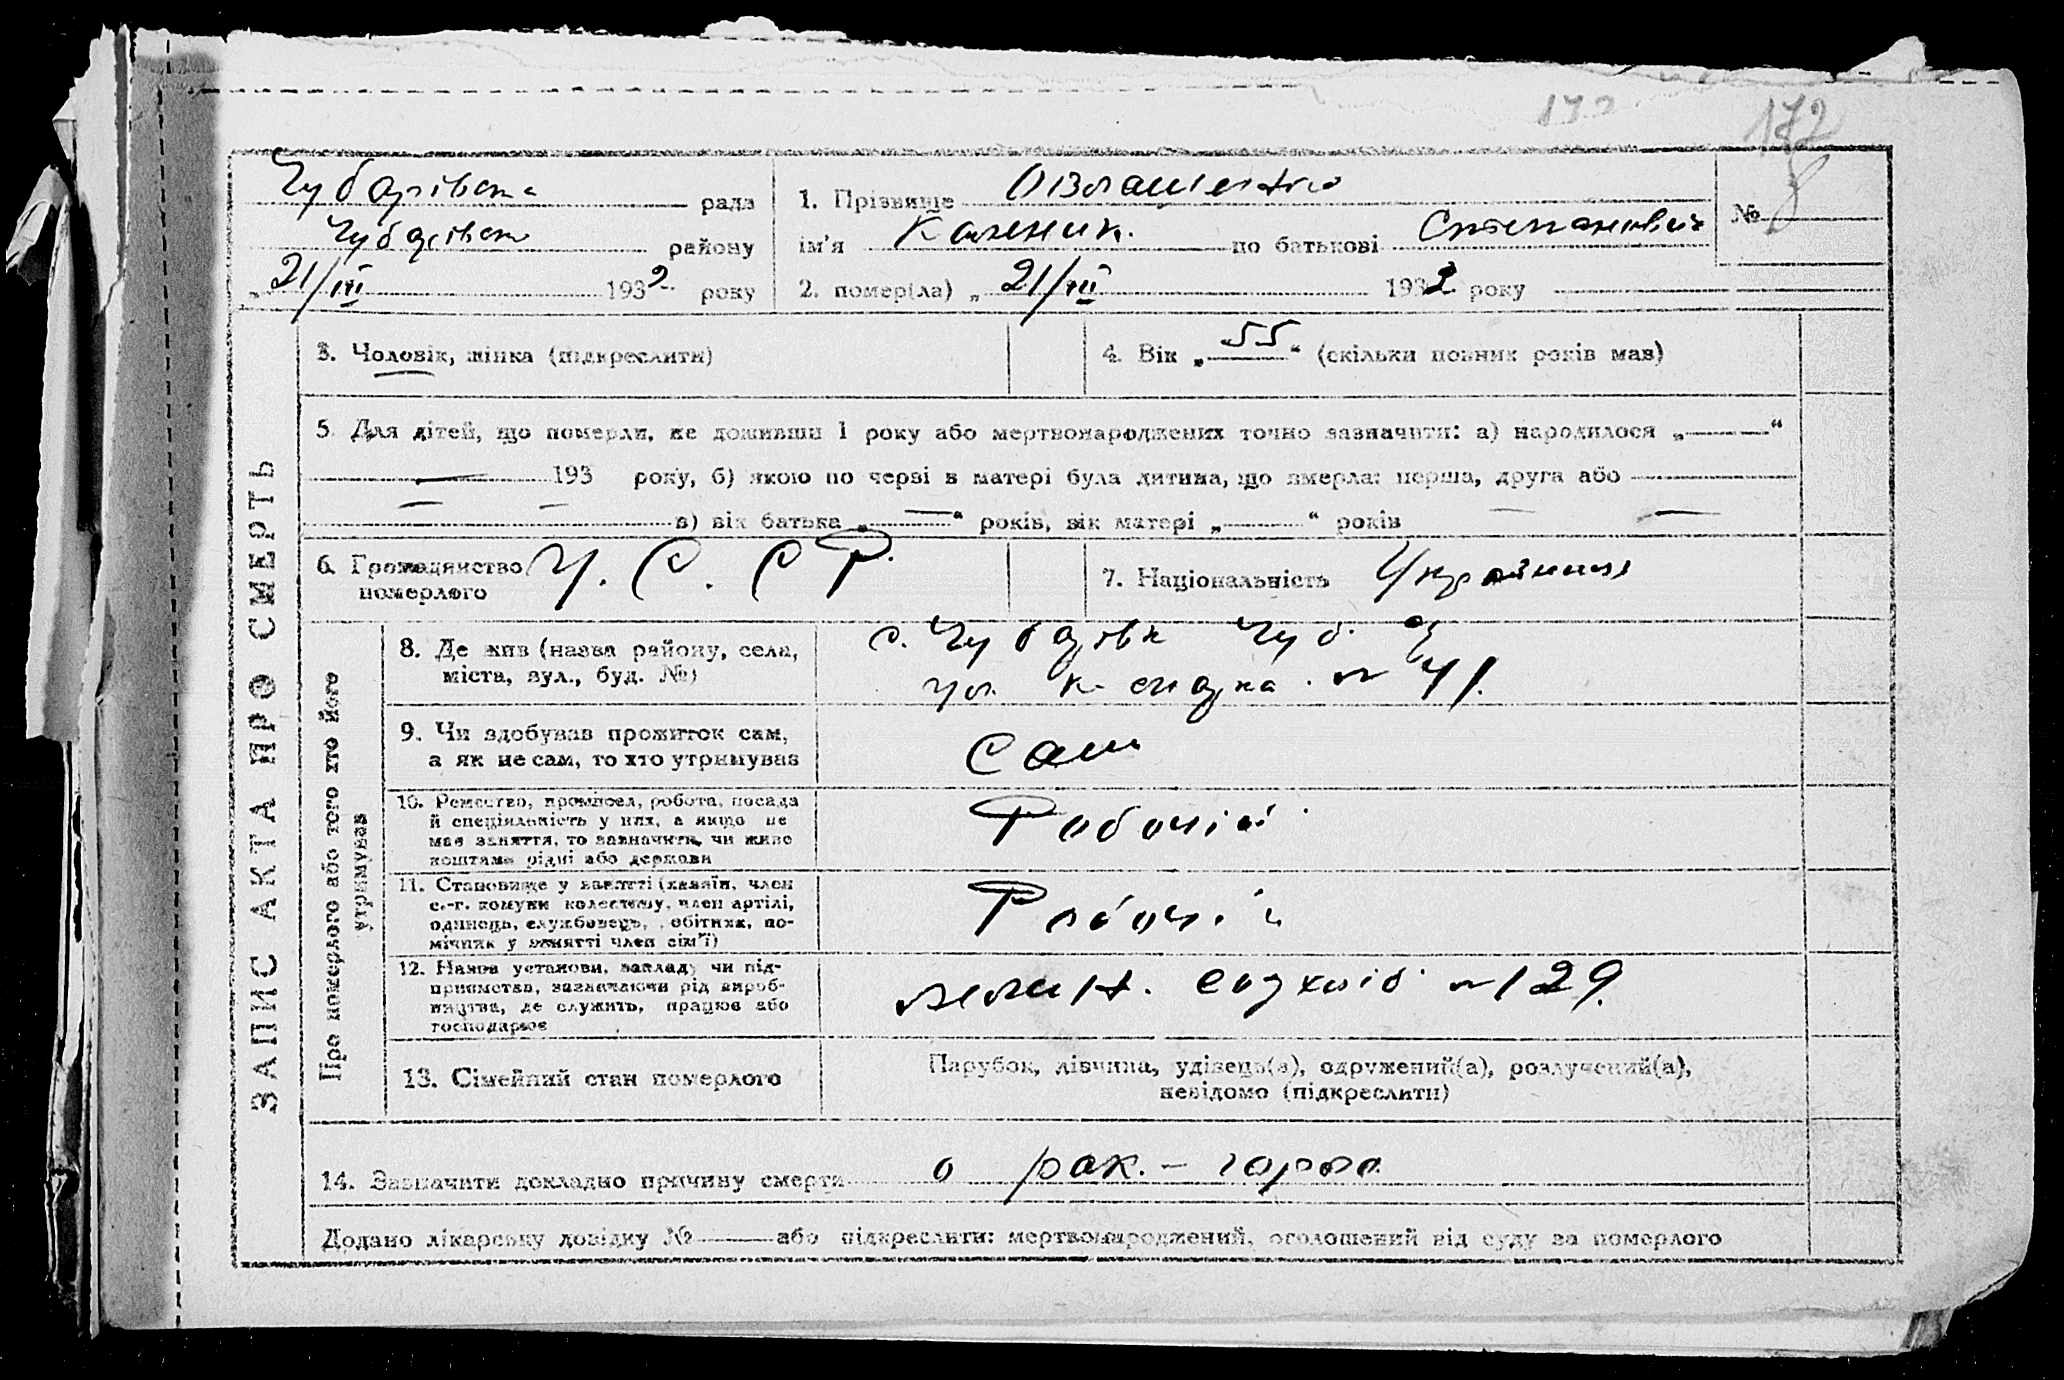 172
172
Чубарівська рада
Чубарівськ району
„ 21/III 1932 року
1. Прізвище
ім'я Каленик. по батькові Степанович
№ 8
2. помер(ла) „ 21/III 1932 року
ЗАПИС АКТА ПРО СМЕРТЬ
3. Чоловік, жінка (підкреслити)
4. Вік „ 55 “ (скільки повних років мав)
5. Для дітей, що померли, не доживши 1 року або мертвонароджених точно зазначити: а) народилося „ — “
— 193 року, б) якою по черзі в матері була дитина, що вмерла: перша, друга або
в) вік батька „ — “ років, вік матері „ “ років — —
6. Громадянство померлого У. С. С Р.
7. Національність Українець
Про померлого або того хто його утримував
8. Де жив (назва району, села,
міста, вул., буд. №)
с. Чубарівк Чуб. р
ул. № 41.
9. Чи здобував прожиток сам,
а як не сам, то хто утримував
Сам
10. Ремество, промисел, робота, посада
й спеціяльність у них, а якщо не
мав заняття, то зазначити, чи живе
коштами рідні або держави
Робочій
11. Становище у занятті (хазяїн, член
с.-г. комуни колективу, член артілі,
одинець, службовець, робітник, по-
мічник у занятті член сім'ї)
Робочій
12. Назва установи, закладу чи під-
приємства, зазначаючи рід вироб-
ництва, де служить, працює або
господарює
радхозі № 129.
13. Сімейний стан померлого
Парубок, дівчина, удівець(а), одружений(а), розлучений(а),
невідомо (підкреслити)
14. Зазначити докладно причину смерти о рак. – горла
Додано лікарську довідку № або підкреслити: мертвонароджений, оголошений від суду за померлого